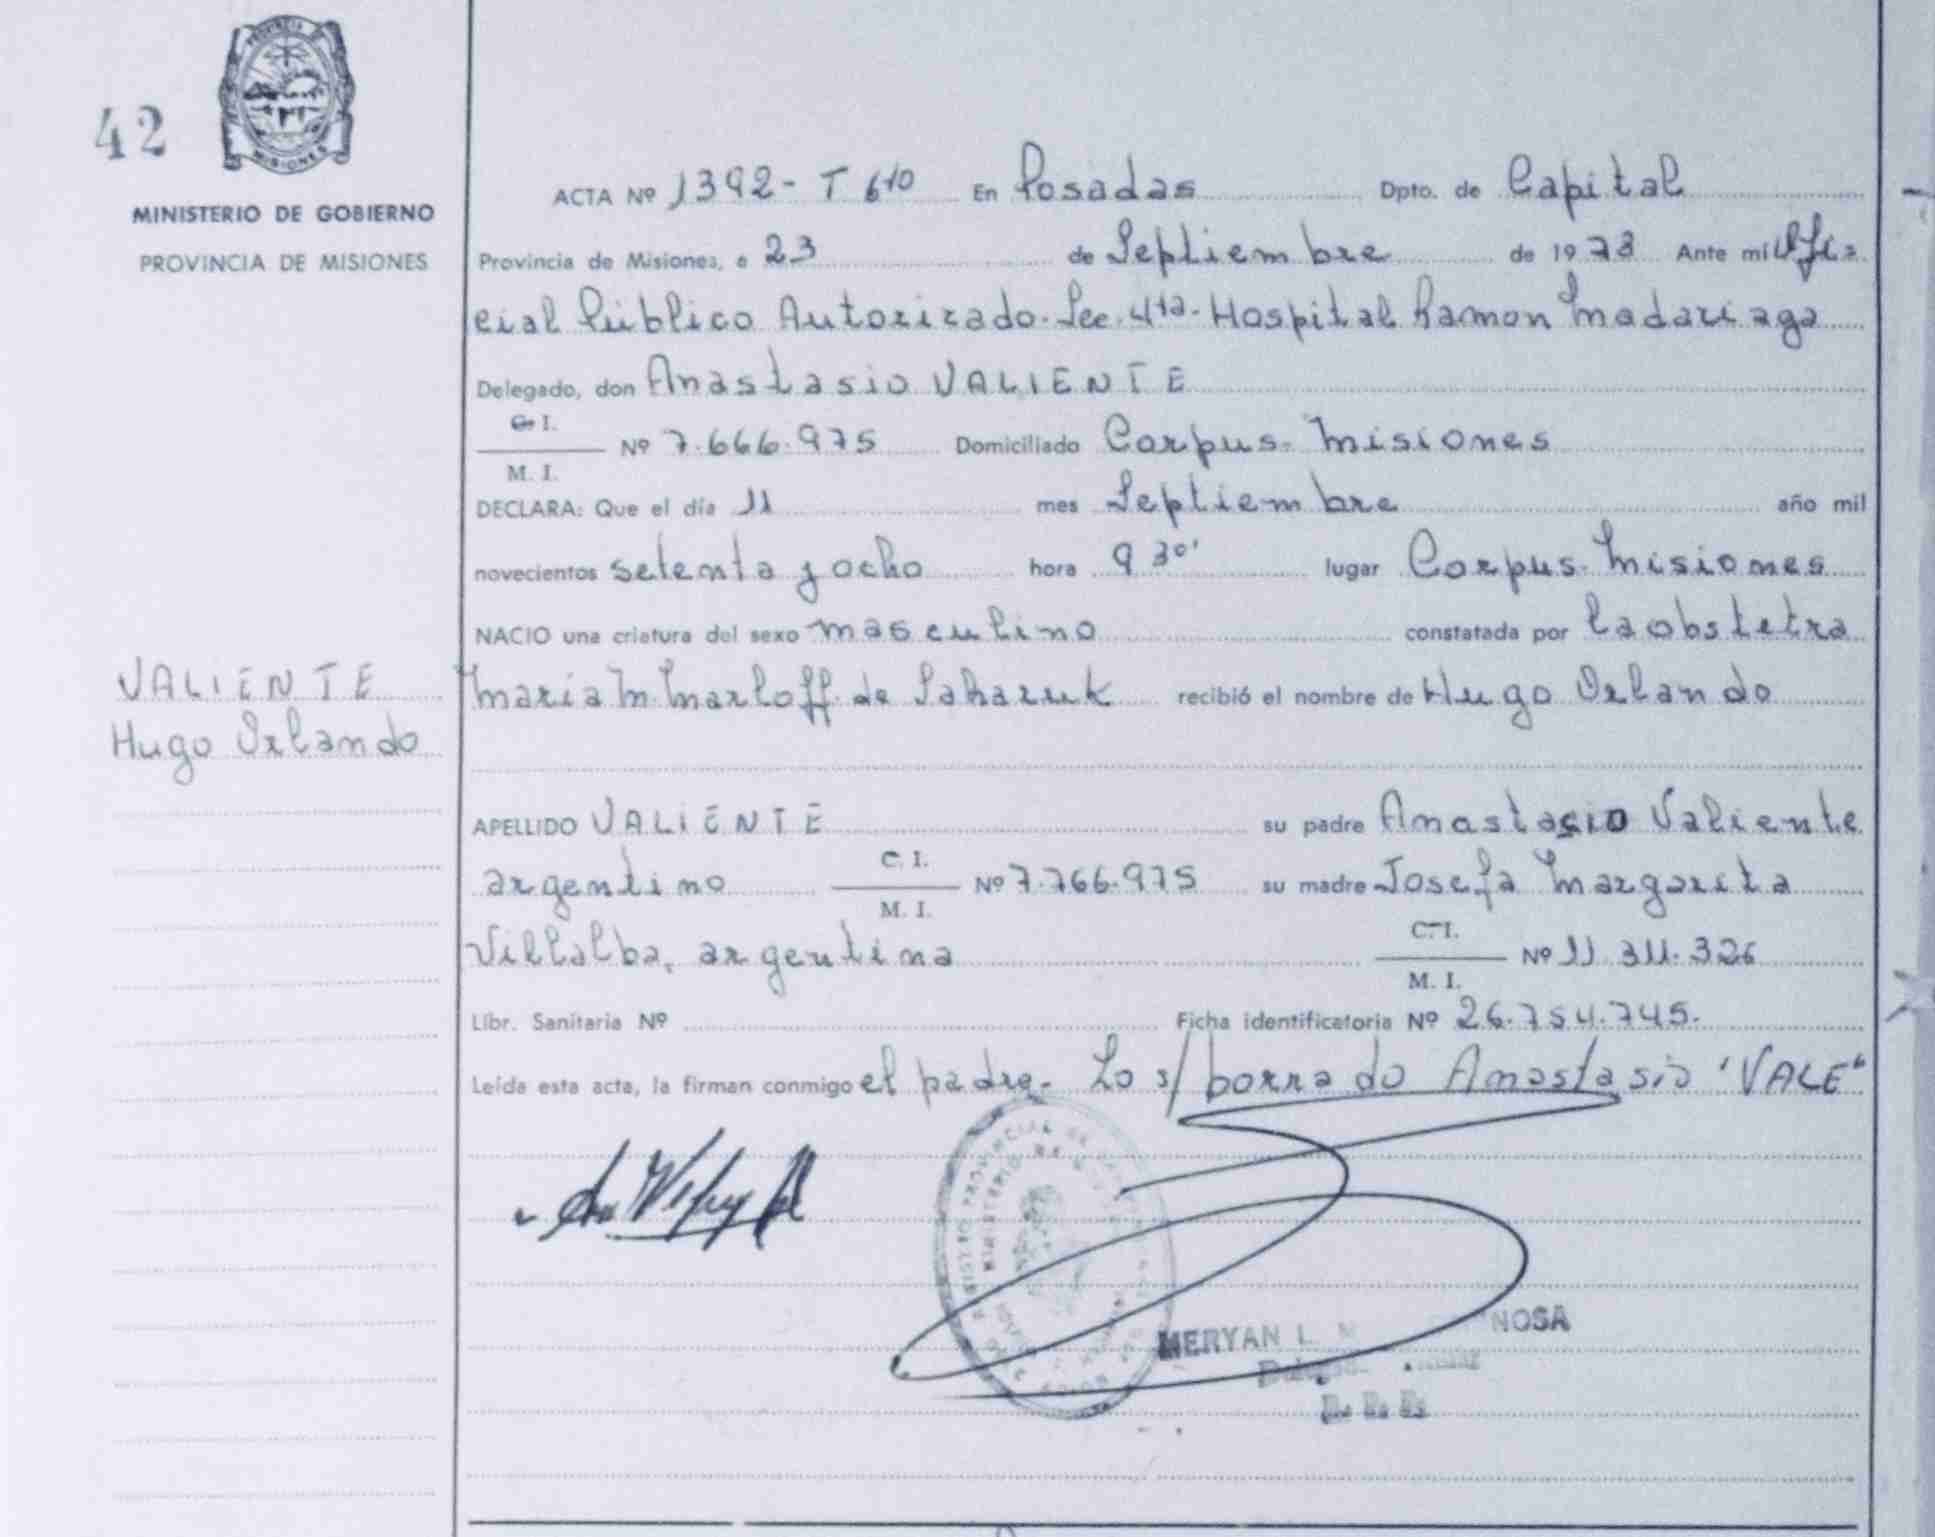 42
MISIONES
MINISTERIO DE GOBIERNO
PROVINCIA DE MISIONES
ACTA Nº 1392 - T 6to En Posadas Dpto. de Capital
Provincia de Misiones, a 23 de Septiembre de 1978 Ante mi Ofi
cial Público Autorizado. Sec. 4ta. Hospital Ramon Madariaga
Delegado, don Anastasio VALIENTE
C. I.
M. I.
Nº 7.666.975 Domiciliado Corpus. Misiones
DECLARA: Que el día 11 mes Septiembre año mil
novecientos setenta y ocho hora 9 30' lugar Corpus. Misiones
NACIO una criatura del sexo masculino constatada por la obstetra
Maria M. Marloff de Saharuk recibió el nombre de Hugo Orlando
VALIENTE
Hugo Orlando
APELLIDO VALIENTE su padre Anastasio Valiente
argentino C. I.
M. I.
Nº 7.766.975 su madre Josefa Margarita
Villalba, argentina C. I.
M. I.
Nº 11.311.326
Libr. Sanitaria Nº Ficha identificatoria Nº 26.754.745.
Leída esta acta, la firman conmigo el padre. Lo s/ borrado Anastasio "VALE"
MERYAN L. NOSA